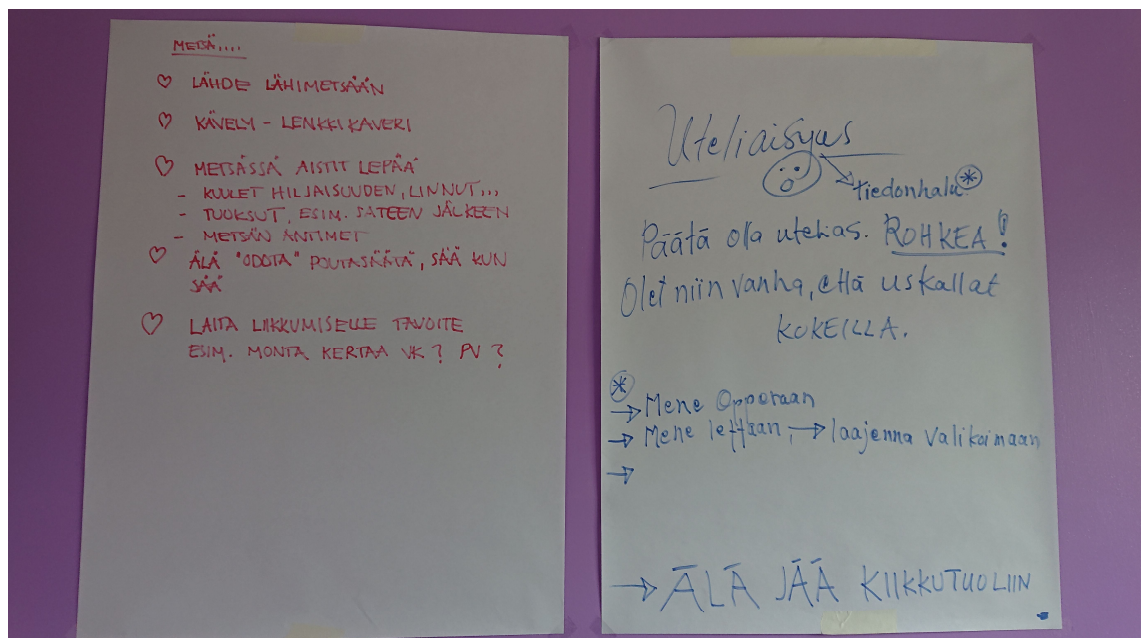 METSÄ....
♡ LÄHDE LÄHIMETSÄÄN
♡ KÄVELY - LENKKIKAVERI
♡ METSÄSSÄ AISTIT LEPÄÄ
- KUULET HILJAISUUDEN, LINNUT...
- TUOKSUT, ESIM. SATEEN JÄLKEEN
- METSÄN ANTIMET
♡ ÄLÄ "ODOTA" POUTASÄÄTÄ, SÄÄ KUN
SÄÄ
♡ LAITA LIIKKUMISELLE TAVOITE
ESIM. MONTA KERTAA VK? PV?
Uteliaisuus
→ tiedonhalu *
Päätä olla utelias. ROHKEA!
Olet niin vanha, että uskallat
KOKEILLA.
*
→ Mene Opperaan
→ Mene leffaan, → laajenna valikoimaan
→
→ ÄLÄ JÄÄ KIIKKUTUOLIIN